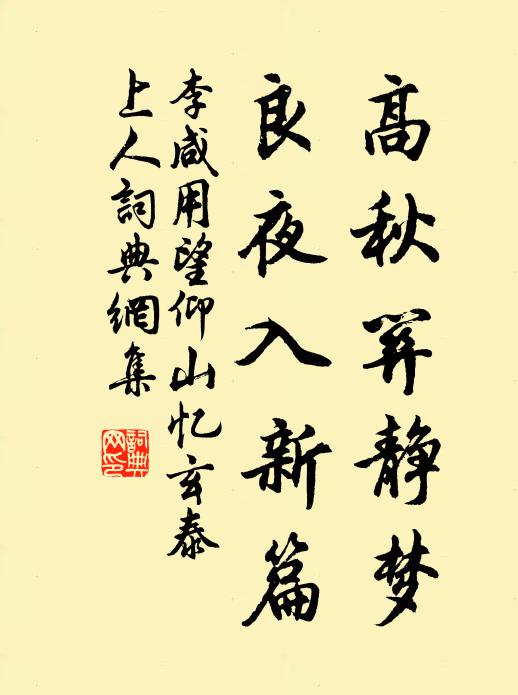 髙秋關静梦
良夜入新篇
李咸用望仰山忆玄泰
上人詞典網集
詞典网印